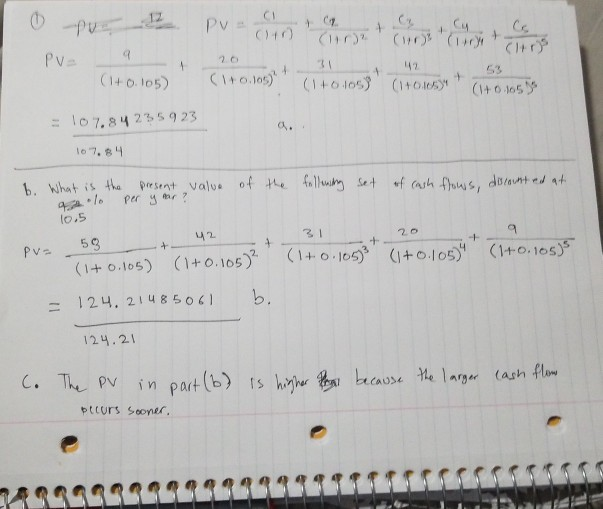 ① PV = C1/(1+r) + C2/(1+r)² + C3/(1+r)³ + C4/(1+r)⁴ + C5/(1+r)⁵
PV = 9/(1+0.105) + 20/(1+0.105)² + 31/(1+0.105)³ + 42/(1+0.105)⁴ + 53/(1+0.105)⁵
= 107.84235923 a.
107.84
b. What is the present value of the following set of cash flows, discounted at
% per year?
10.5
PV = 53/(1+0.105) + 42/(1+0.105)² + 31/(1+0.105)³ + 20/(1+0.105)⁴ + 9/(1+0.105)⁵
= 124.21485061 b.
124.21
C. The PV in part (b) is higher because the larger cash flow
occurs sooner.